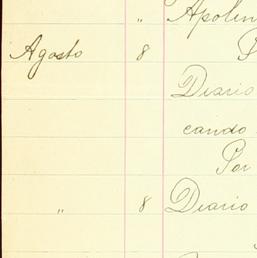 "
Agosto 8
Diario
cando
Por
" 8 Diario